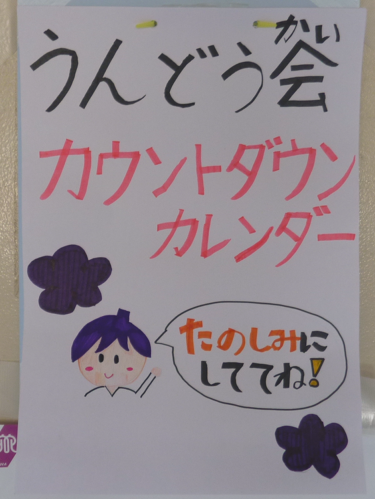 うんどう会
かい
カウントダウン
カレンダー
たのしみに
しててね!